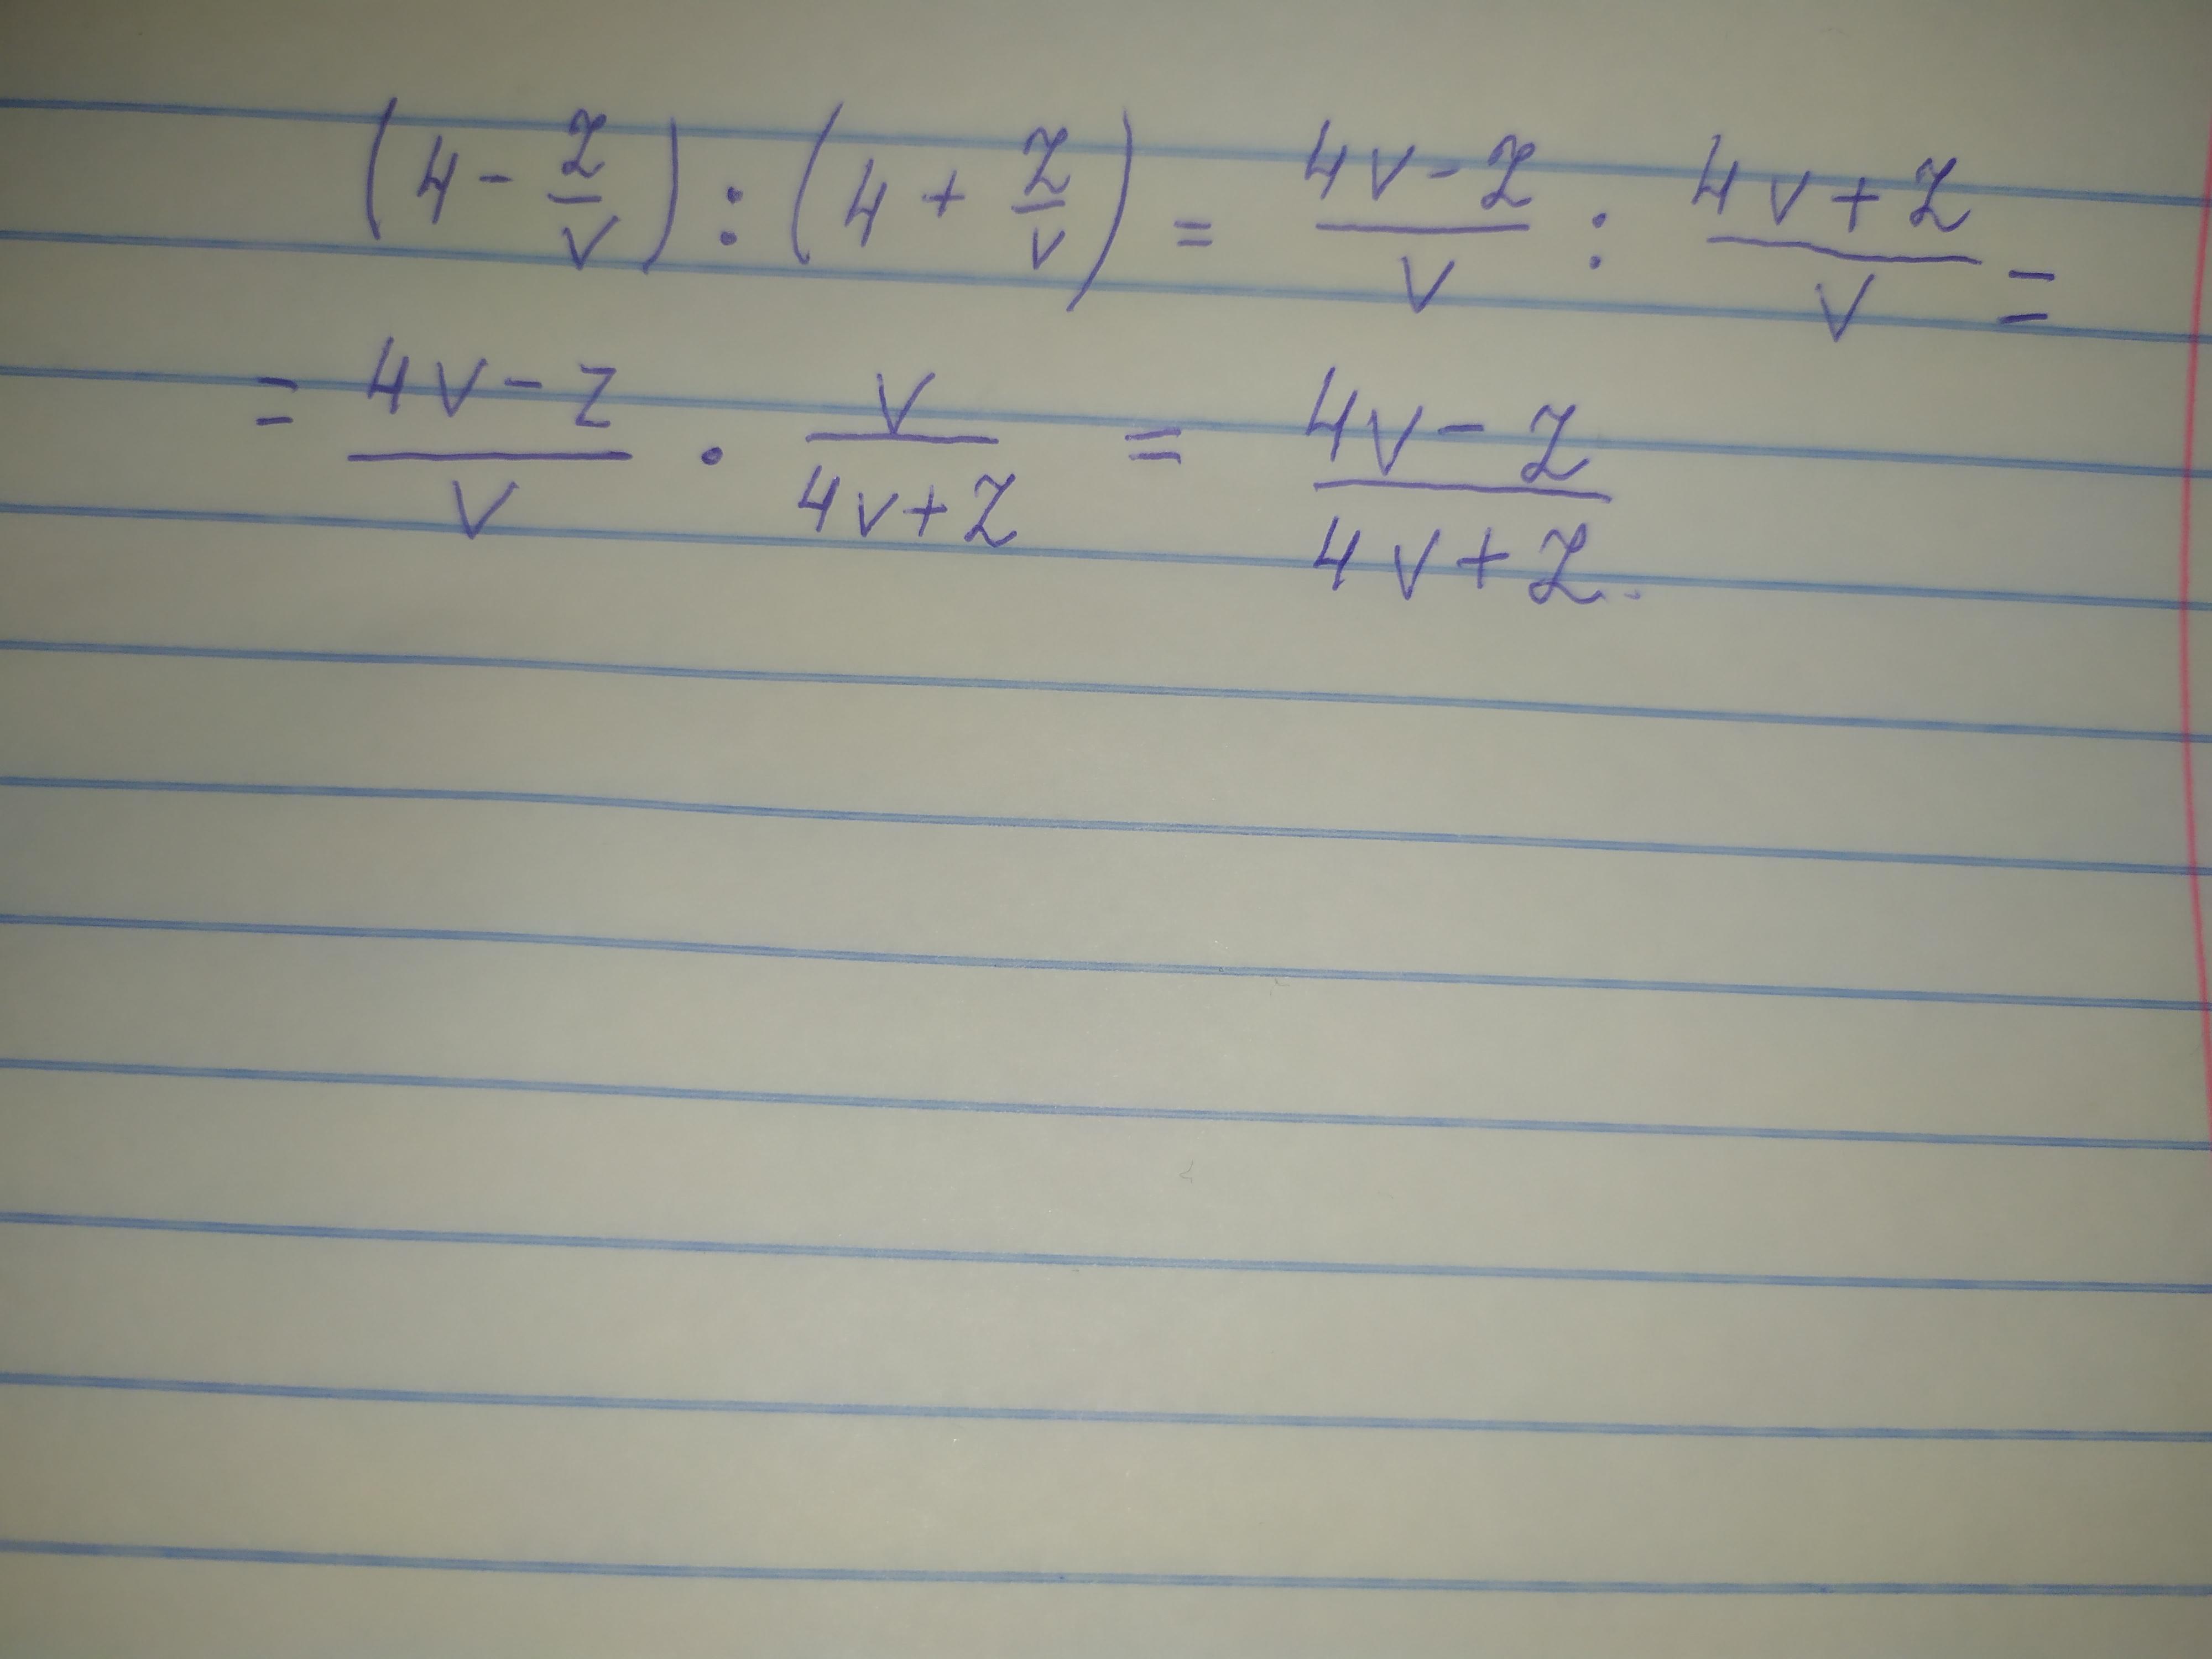 (4 - z/v) : (4 + z/v) = (4v - z)/v : (4v + z)/v =
= (4v - z)/v · v/(4v + z) = (4v - z)/(4v + z).